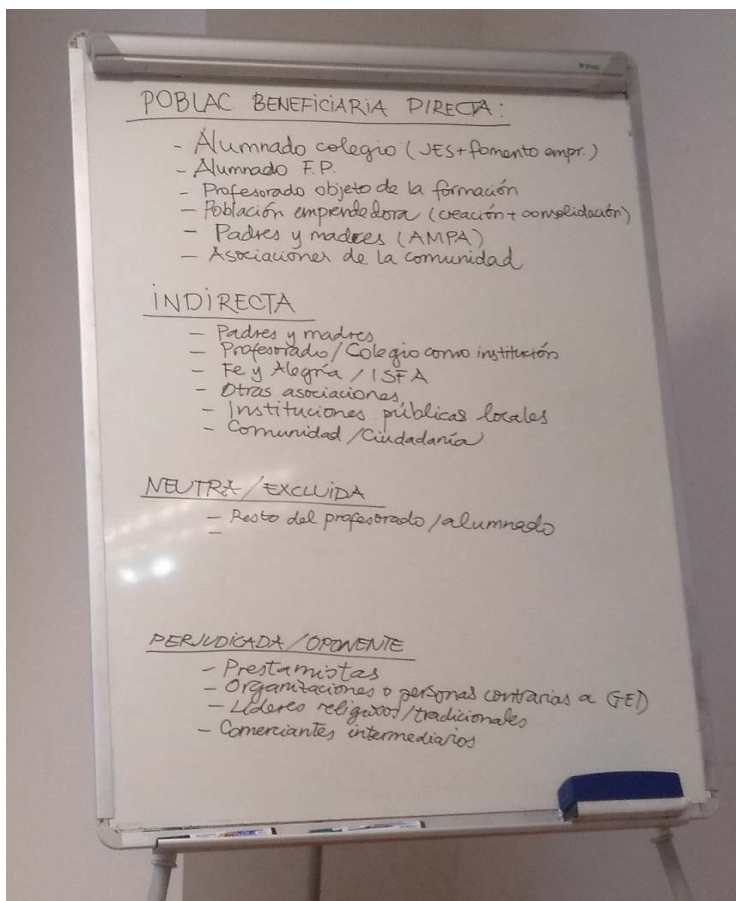 POBLAC. BENEFICIARIA DIRECTA:
- Alumnado colegio (JES+fomento empr.)
- Alumnado F.P.
- Profesorado objeto de la formación
- Población emprendedora (creación + consolidación)
- Padres y madres (AMPA)
- Asociaciones de la comunidad
INDIRECTA
- Padres y madres
- Profesorado / Colegio como institución
- Fe y Alegría / ISFA
- Otras asociaciones
- Instituciones públicas locales
- Comunidad / Ciudadanía
NEUTRA / EXCLUIDA
- Resto del profesorado / alumnado
-
PERJUDICADA / OPONENTE
- Prestamistas
- Organizaciones o personas contrarias a GED
- Líderes religiosos / tradicionales
- Comerciantes intermediarios